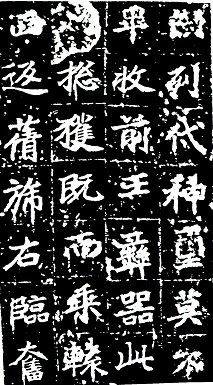 列代神璽莫不
收前王彝器此
總獲既而乘轅
西返蒨旆右臨奮